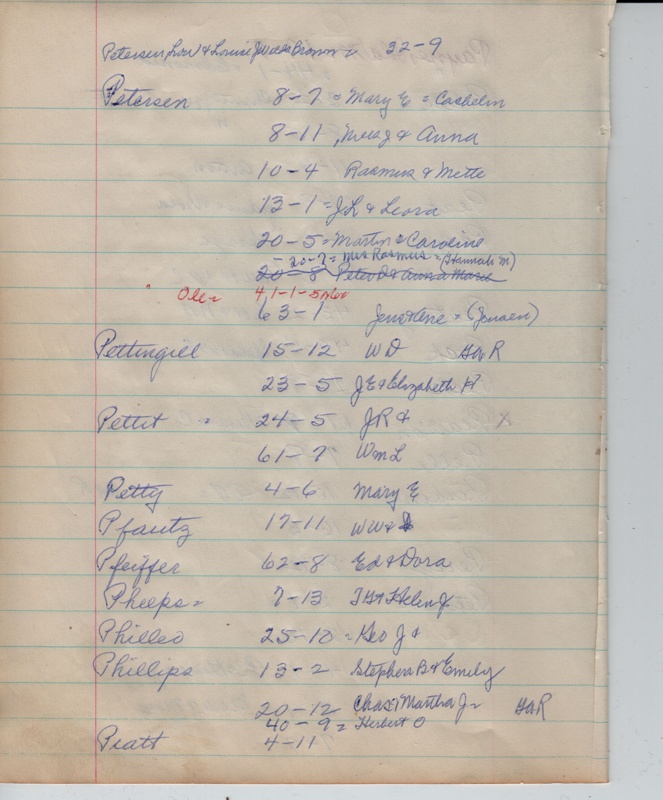 Petersen, Lou & Louise Brown = 32-9
Petersen 8-7 = Mary E = Cashelin
8-11, & Anna
10-4 Rasmus & Mette
13-1 = JL & Leora
20-5 = Martin & Caroline
- 20-7 = Mrs Rasmus = (Hannah M)
20-8 Peter D & Anna Marie
Ole = 4, 1-1-5
63-1 = (Jensen)
Pettingill 15-12 W D GAR
23-5 J E & Elizabeth H
Pettit = 24-5 JR & X
61-7 Wm L
Petty 4-6 Mary E
Pfautz 17-11 WW &
Pfeiffer 62-8 Ed & Dora
Phelps = 7-13 & Helen J
Philleo 25-10 = Geo J &
Phillips 13-2 Stephen B & Emily
20-12 Chas & Martha J = GAR
40-9 = Herbert O
Piatt 4-11